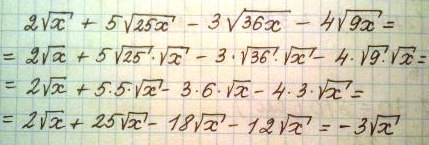 2√x + 5√25x - 3√36x - 4√9x =
= 2√x + 5√25·√x - 3·√36·√x - 4·√9·√x =
= 2√x + 5·5·√x - 3·6·√x - 4·3·√x =
= 2√x + 25√x - 18√x - 12√x = -3√x